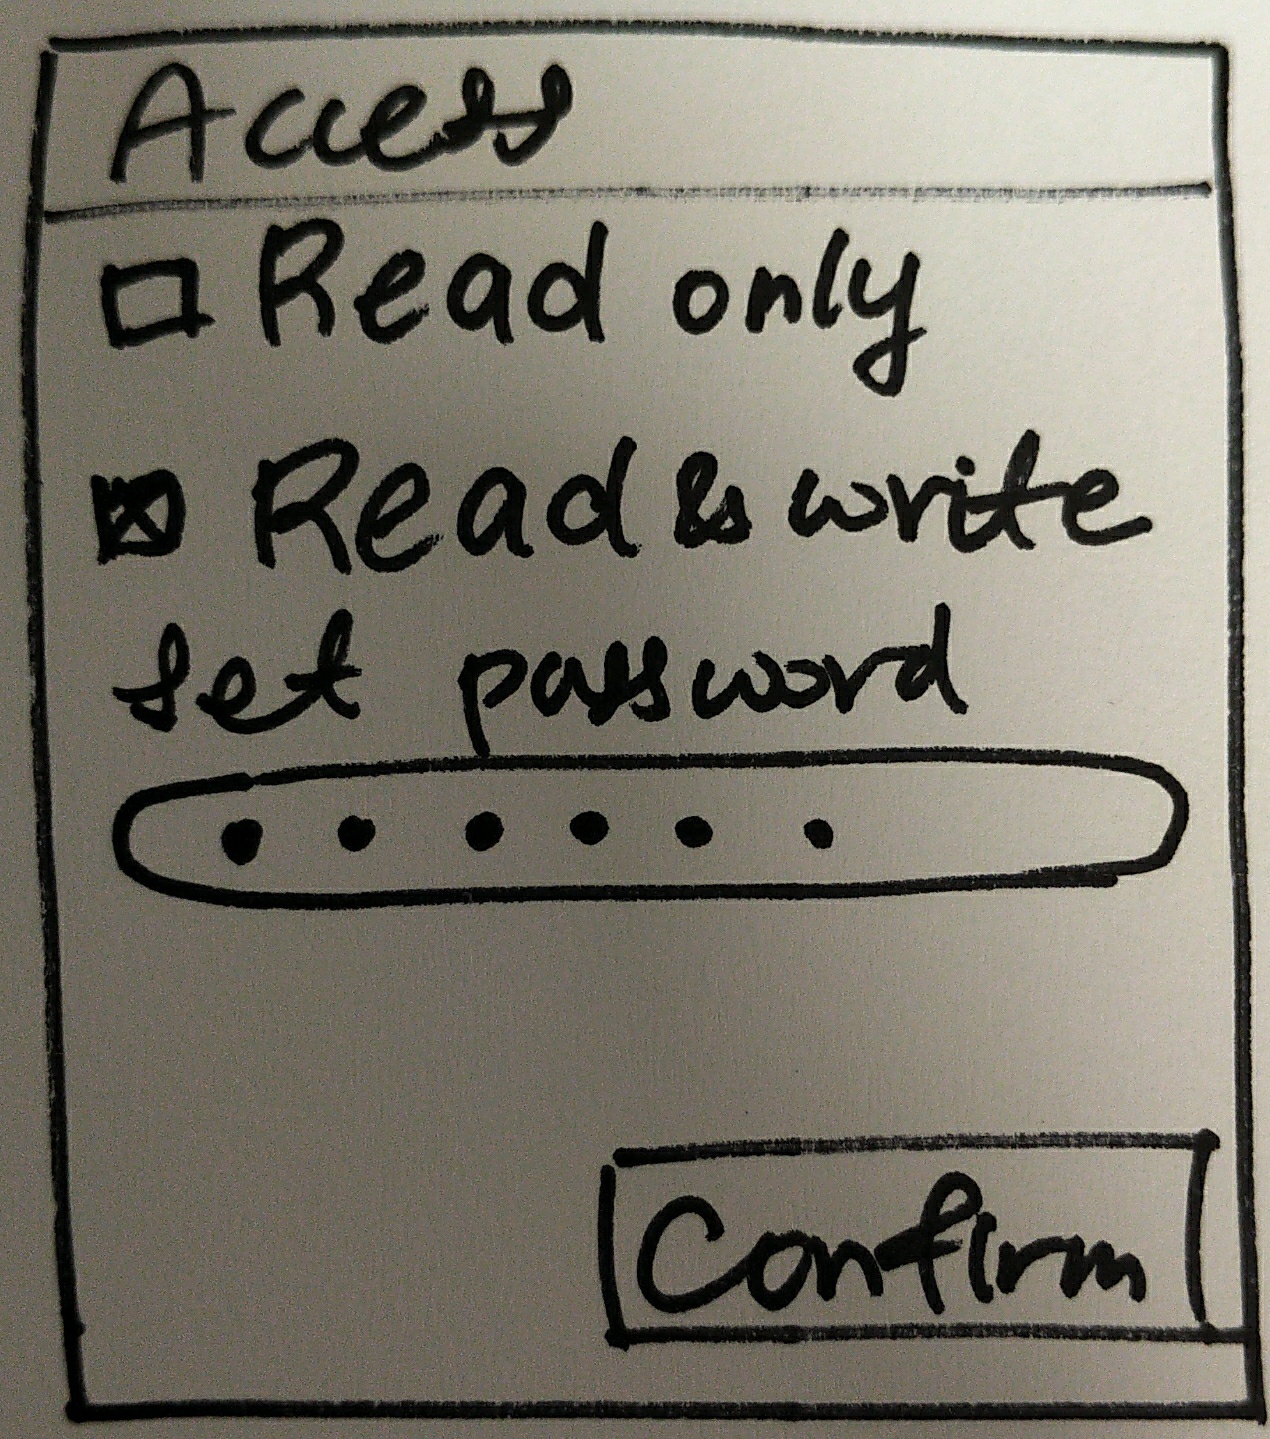 Access
Read only
Read & write
Set password
Confirm